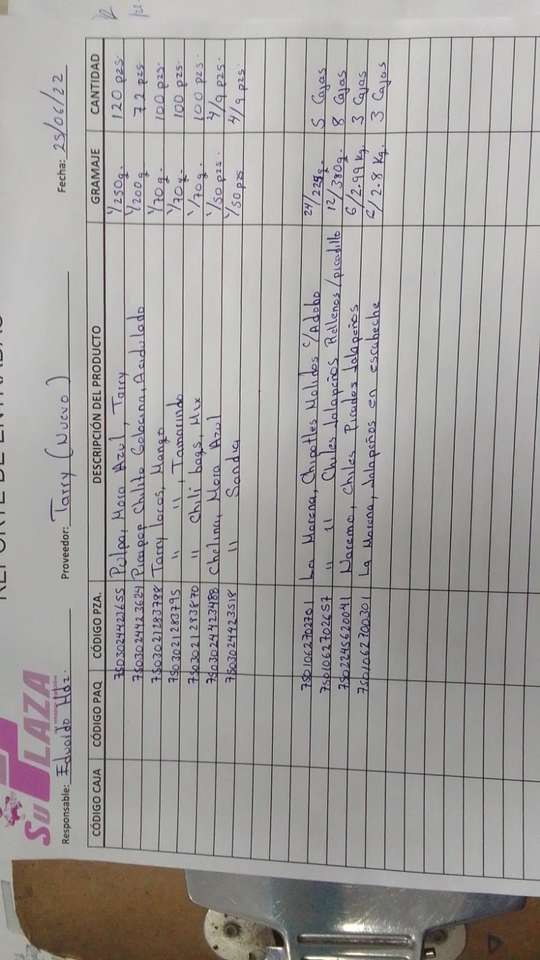 REPORTE DE ENTRADAS
Su PLAZA
Responsable: Eduardo Hdz. Proveedor: Tarry (Nuevo) Fecha: 25/06/22
CÓDIGO CAJA CÓDIGO PAQ CÓDIGO PZA. DESCRIPCIÓN DEL PRODUCTO GRAMAJE CANTIDAD
7503024423655 Pulpa, Mora Azul, Tarry 1/250g. 120 pzs.
7503024423624 Picapop Chilito Calacana, Acidulado 1/200g 72 pzs
7503021283788 Tarry Locos, Mango 1/70g. 100 pzs.
7503021283795 " " , Tamarindo 1/70g. 100 pzs.
7503021283870 " Chili bags, Mix 1/70g. 100 pzs.
7503024423488 Chelina, Mora Azul 1/50 pzs. 4/9 pzs.
7503024423518 " Sandia 1/50 pzs 4/9 pzs.
7501062702701 La Morena, Chipotles Molidos c/Adobo 24/225g. 5 Cajas
7501062702657 " " Chiles Jalapeños Rellenos/picadillo 12/380g. 8 Cajas
7502245620041 Naremo, Chiles Picados Jalapeños 6/2.99 Kg. 3 Cajas
7501062700301 La Morena, Jalapeños en escabeche 6/2.8 Kg. 3 Cajas